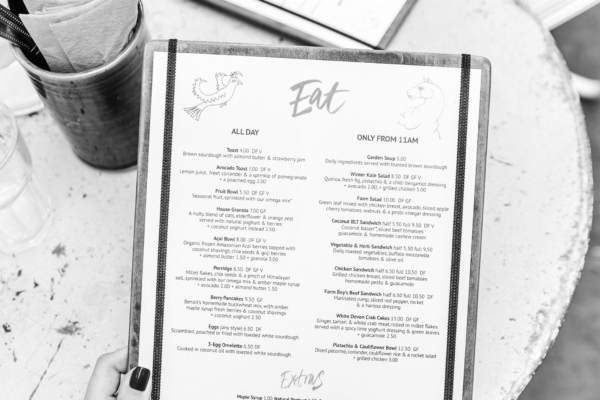 Eat
ALL DAY
Toast 4.00 DF V
Brown sourdough with almond butter & strawberry jam
Avocado Toast 7.00 DF V
Lemon juice, fresh coriander & a sprinkle of pomegranate
+ a poached egg 2.00
Fruit Bowl 5.50 DF GF V
Seasonal fruit, sprinkled with our omega mix*
House Granola 7.00 GF
A nutty blend of oats, elderflower & orange zest
served with natural yoghurt & berries
+ coconut yoghurt instead 2.50
Açaí Bowl 8.00 DF GF V
Organic frozen Amazonian Açaí berries topped with
coconut shavings, chia seeds & goji berries
+ almond butter 1.50 + granola 3.00
Porridge 6.50 DF GF V
Millet flakes, chia seeds & a pinch of Himalayan
salt, sprinkled with our omega mix & amber maple syrup
+ avocado 2.00 + almond butter 1.50
Berry Pancakes 9.50 GF
Benoit's homemade buckwheat mix, with amber
maple syrup fresh berries & coconut shavings
+ coconut yoghurt 2.50
Eggs (any style) 6.50 DF
Scrambled, poached or fried with toasted white sourdough
3-Egg Omelette 6.50 DF
Cooked in coconut oil with toasted white sourdough
ONLY FROM 11AM
Garden Soup 5.00
Daily ingredients served with toasted brown sourdough
Winter Kale Salad 8.50 DF GF V
Quinoa, fresh fig, pistachio & a chilli bergamot dressing
+ avocado 2.00, + grilled chicken 3.00
Farm Salad 10.00 DF GF
Green leaf mixed with chicken breast, avocado, sliced apple
cherry tomatoes, walnuts & a pesto vinegar dressing
Coconut BLT Sandwich half 5.50 full 9.50 DF V
Coconut bacon*, sliced beef tomatoes
guacamole & homemade cashew cream
Vegetable & Herb Sandwich half 5.50 full 9.50
Daily roasted vegetables, buffalo mozzarella
tomatoes & olive oil
Chicken Sandwich half 6.50 full 10.50 DF
Grilled chicken breast, sliced beef tomatoes
homemade pesto & guacamole
Farm Boy's Beef Sandwich half 6.50 full 10.50 DF
Marinated rump, sliced red pepper, rocket
& a harissa dressing
White Devon Crab Cakes 13.00 DF GF
Ginger, tartare & white crab meat, rolled in millet flakes
served with a spicy lime yoghurt dressing & green leaves
+ guacamole 2.50
Pistachio & Cauliflower Bowl 12.50 GF
Diced pecorino, coriander, cauliflower rice & a rocket salad
+ grilled chicken 3.00
Extras
Maple Syrup 1.00 Natural Yoghurt